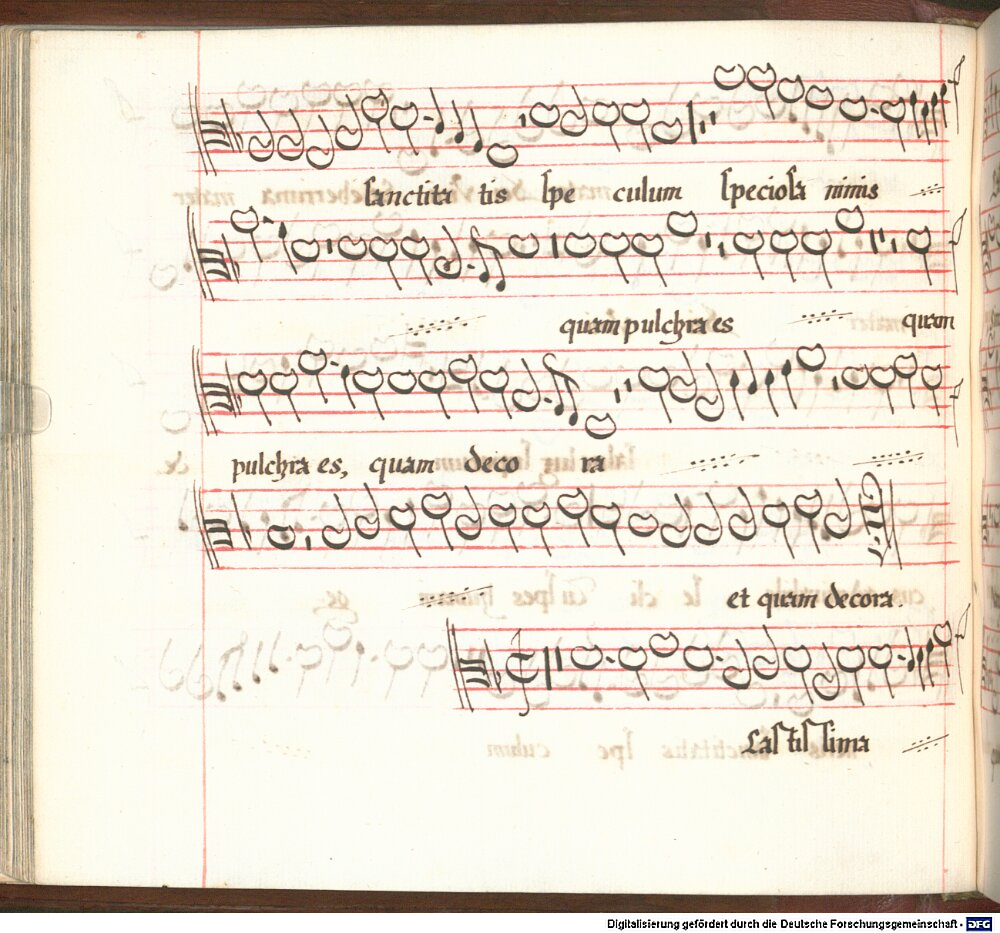 sanctita tis spe culum speciosa nimis
quam pulchra es quam
pulchra es, quam deco ra
et quam decora.
Castissima
Digitalisierung gefördert durch die Deutsche Forschungsgemeinschaft - DFG